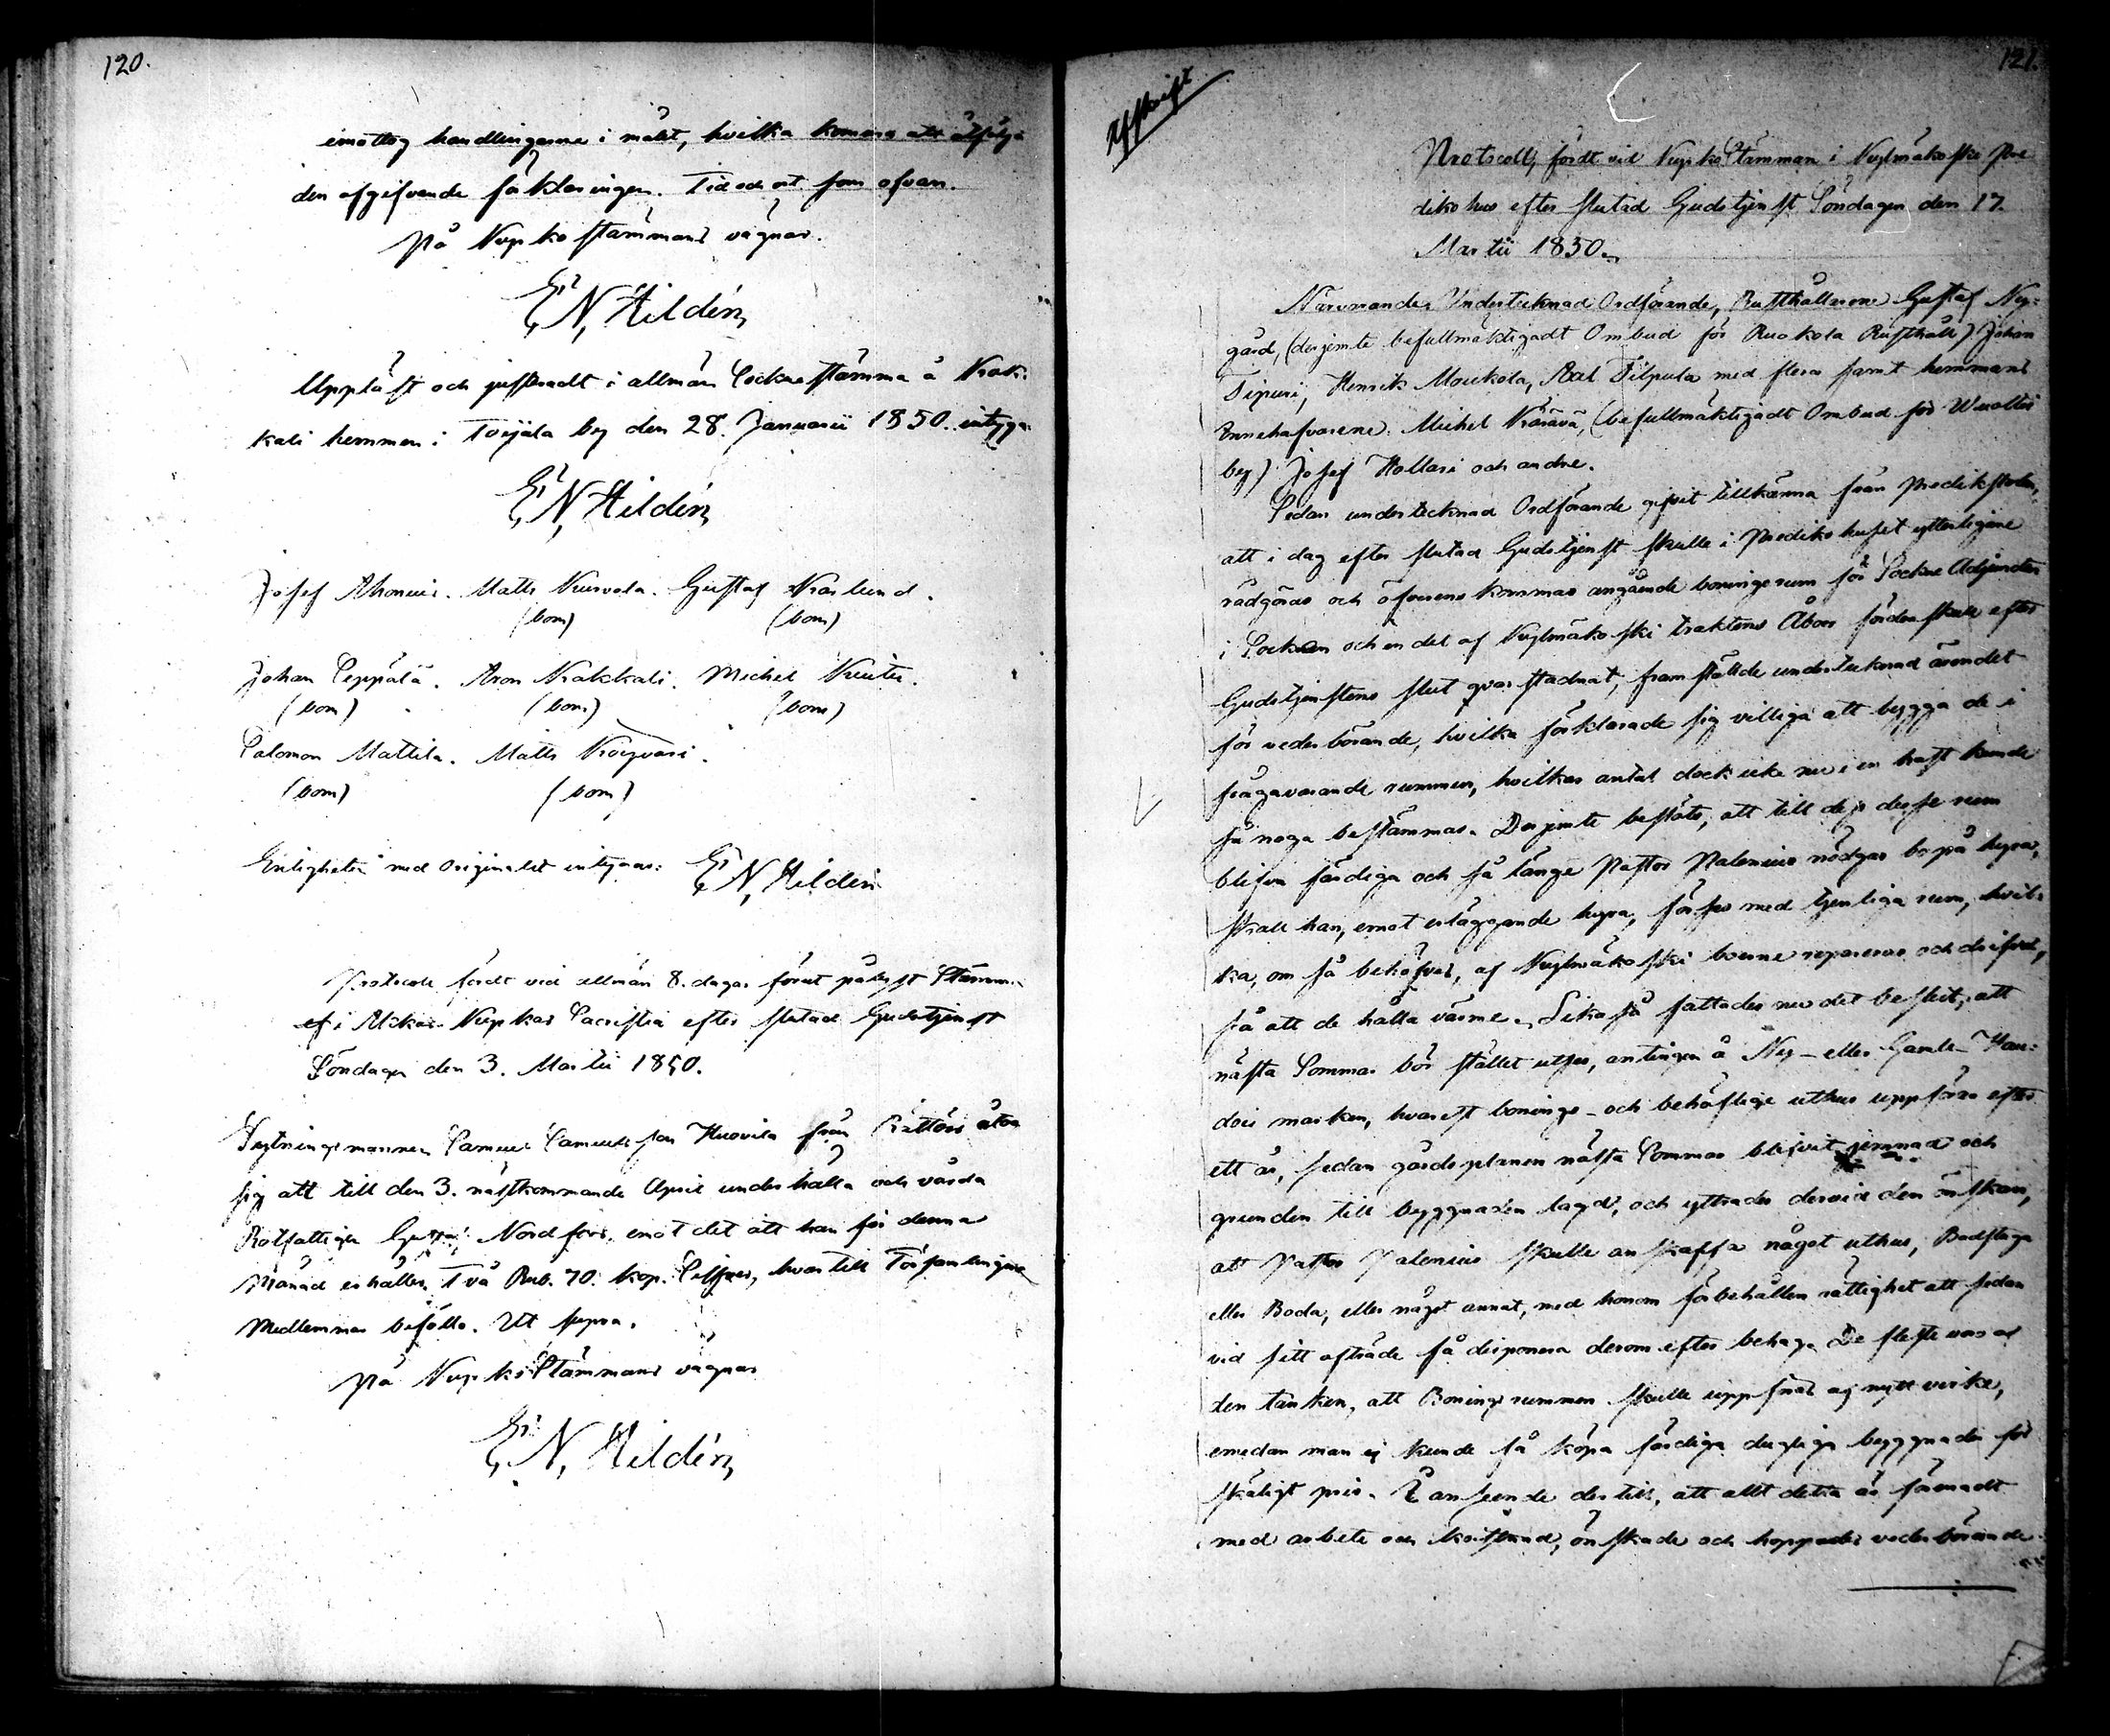 120.
emottog handlingarne i målet, hvilka komma att åtfölja
den afgifvande förklaringen. Tid och ort som ofvan.
På Nykyrko stämmans vägnar.
E. N. Hildén
Uppläst och justeradt i allmän Sockne stämma å Krak-
kali hemman i Torjala by den 28. Januarii 1850. intyga
E. N. Hildén
Josef Ahonius. Matts Kurvola. Gustaf Kraslund.
(bom) (bom)
Johan Seppälä. Aron Krakkali. Michel Knuter.
(bom) (bom) (bom)
Salomon Mattila. Matts Korpvari.
(bom) (bom)
Enligheten med Originalet intygar: E. N. Hildén
Protocoll fördt vid allmän 8. dagar förut pålyst Stämma
i Nykyrko Sacristia efter slutad Gudstjenst
Söndagen den 3. Martii 1850.
Sytningsmannen Samuel Samuelsson Huovila från Rättöis åtog
sig att till den 3. nästkommande April underhålla och vårda
Rotfattiga Nordfors, emot det att han för denna
Månad erhåller Två Rub. 70. kop. Silfver, hvartill Församlingens
Medlemmar biföllo. Ut supra.
På Nykyrko Stämmans vägnar
E. N. Hildén
121.
Afskrift
Protocoll, fördt vid Nykyrko Stämman i Nylmäkoski Pre
diko hus efter slutad Gudstjenst Söndagen den 17.
Martii 1850.
Närvarande Undertecknad Ordförande, Rusthållarene Gustaf Ny-
gård, (derjemte befullmäktigadt Ombud för Ruokola Rusthåll) Johan
Sipuri, Henrik Moukola, Axel Filpula med flera samt hemmans
Innehafvarene Michel Kräävä, (befullmäktigadt Ombud för
by) Josef Hollari och andre.
Sedan undertecknad Ordförande gifvit tillkänna från Predikstolen,
att i dag efter slutad Gudstjenst skulle i Prediko huset ytterligare
rådgöras och öfverenskommas angående boningsrum för Sockne Adjuncten
i Socknen och en del af Nylmäkoski traktens Åboer fördenskull efter
Gudstjenstens slut qvarstadnat, framställde undertecknad ärendet
för vederbörande, hvilka förklarade sig villiga att bygga de i
frågavarande rummen, hvilkas antal dock icke nu i en hast kunde
så noga bestämmas. Derjemte beslöts, att till dess desse rum
blifva färdiga och så länge Pastor Palenius nödgas bo på hyra,
skall han, emot erläggande hyra, förses med tjenliga rum, hvil-
ka, om så behöfves, af Nylmäkoski boerne repareras och drifvas,
så att de hålla värme. Lika så fattades nu det beslut, att
nästa Sommar bör stället utses, antingen å Ny- eller Gamla- Han-
dois marken, hvarest bonings- och behöflige uthus uppföras efter
ett år, sedan gårdsplanen nästa Sommar blifvit jemnad och
grunden till byggnaden lagd, och yttrades dervid den önskan,
att Pastor Palenius skulle anskaffa något uthus, Badstuga
eller Boda, eller något annat, med honom förbehållen rättighet att sedan
vid sitt afträde få disponera derom efter behag. De fleste voro af
den tanken, att Boningsrummen skulle uppföras af nytt virke,
emedan man ej kunde få köpa färdiga dugliga byggnader för
skäligt pris. I anseende dertill, att allt detta är förenadt
med arbete och kostnad, önskade och hoppades vederbörande